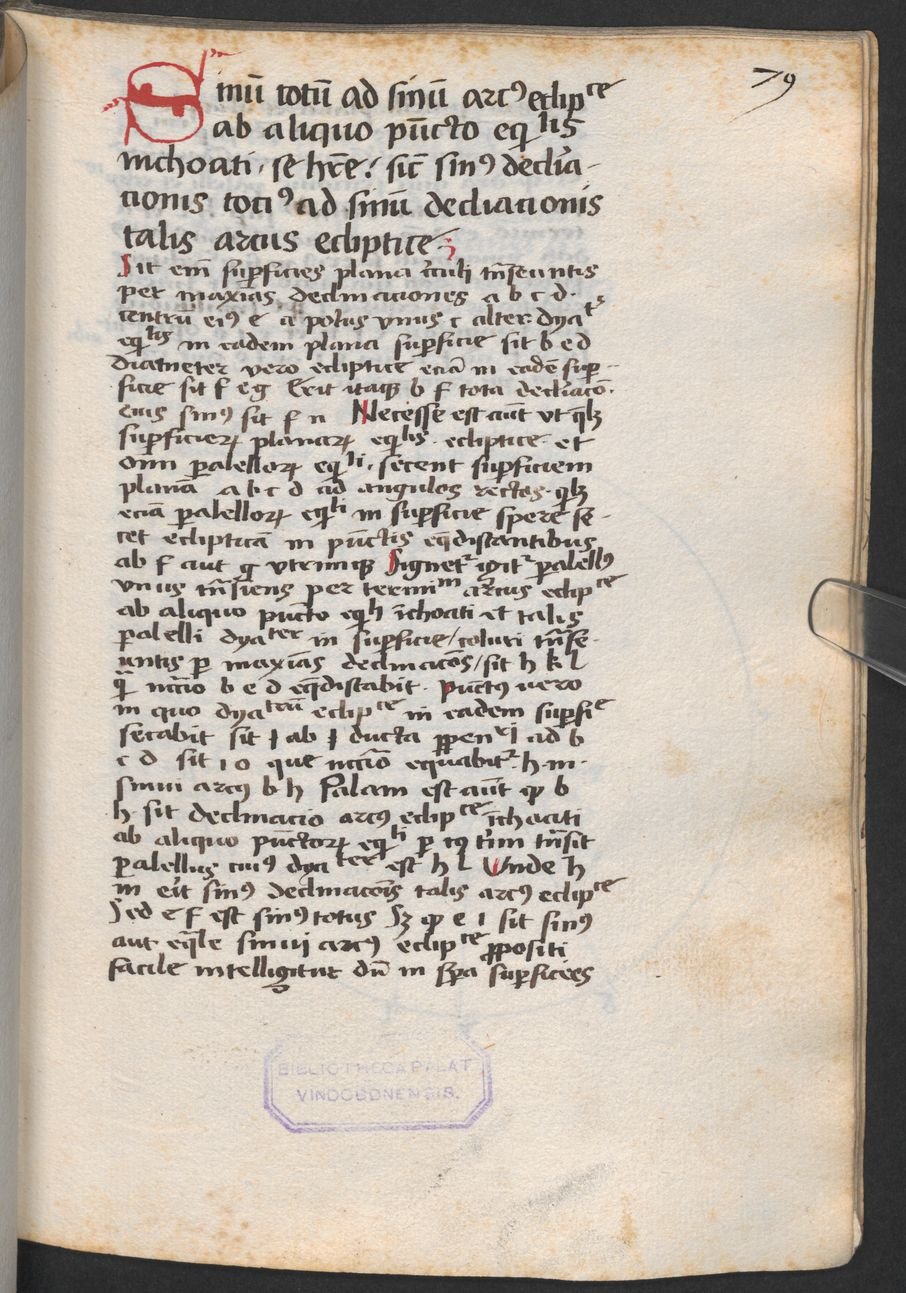 79
Sinū totū ad sinū arcꝰ eclipᶜᵉ
ab aliquo pūcto eqˡⁱˢ
inchoati, se hr̄e, sic̄ sinꝰ declīa-
tionis totiꝰ ad sinū declīacionis
talis arcus ecliptice
Sit em̄ suꝑficies plana cͥculi tn̄seuntis
per maxīas declinaciones a b c d ·
centrū eiꝰ e a polus vnus c alter · dyaᵗˢ
eqˡⁱˢ in eadem plana suꝑficie sit b e d
diameter vero ecliptice eciā in eadē suꝑ-
ficie sit f e g Erit itaqꝫ b f tota declīacō.
cuis sinꝰ sit f n Necesse est aūt vt qꝫ
suꝑficieꝝ planaꝝ eqˡⁱˢ · ecliptice et
om̄ ꝑalelloꝝ eqˡⁱ, secent suꝑficiem
planā a b c d ad angulos rectos · qꝫ
eciā ꝑalelloꝝ eqˡⁱ in suꝑficie spere se-
cet eclipticā in pūctis eq̄distantibus
ab f aut g vtrimqꝫ Signetʳ igitʳ ꝑalellꝰ
vnus tn̄siens per terminᵐ arcus eclipᶜᵉ
ab aliquo pūcto eqˡⁱ īchoati et talis
ꝑalelli dyaᵗᵉʳ in suꝑficie / coluri tn̄se-
untis ꝑ maxīas declinacōs / sit h k l
q̄ nccīo b e d eq̄distabit · pūctꝰ vero
in quo dyaᵗʳū eclipᶜᵉ in eadem suꝑfiᵉ
secabit sit I ab I ducta ꝑpenˡ ad b
e d sit I o que nccīo equabitʳ · h · m ·
sinui arcꝰ b h Palam est aūt ꝙ b
h sit declinacio arcꝰ eclipᶜᵉ īchoati
ab aliquo pūctoꝝ eqˡⁱ ꝑ cꝰ tͥm tn̄sit
ꝑalellus cuiꝰ dyaᵗᵉʳ est h l Vnde h
m eīt sinꝰ declinacōis talis arcꝰ eclipᶜᵉ
Sed e f est sinꝰ totus Sꝫ ꝙ e I sit sinꝰ
aut eq̄le sinuj arcꝰ eclipᶜᵉ ꝓpositi
facile intelligitur dū in sp̄a suꝑficies
BIBLIOTHECA PALAT.
VINDOBONENSIS.